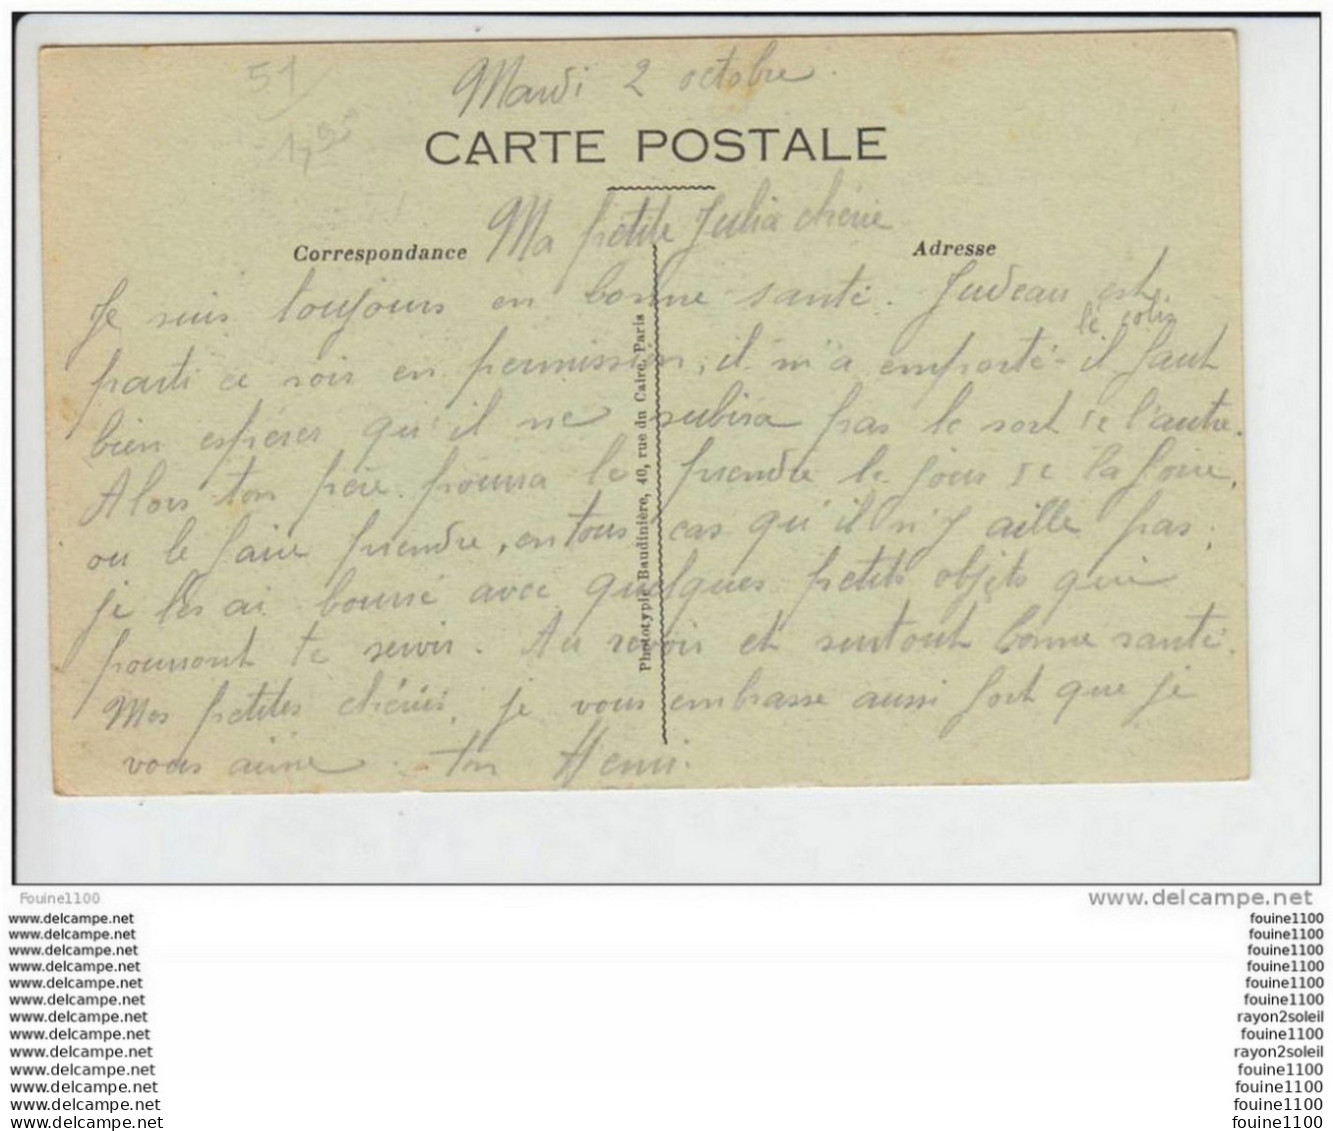 51
1,95
Mardi 2 octobre.
CARTE POSTALE
Ma petite Julia chérie
Correspondance
Adresse
Je suis toujours en bonne santé. Judeau est
parti ce soir en permission, il m'a emporté le colis il faut
bien espérer qu'il ne subira pas le sort de l'autre.
Alors ton père pourra le prendre le jour de la foire,
ou le faire prendre, en tous cas qu'il n'y aille pas,
je les ai bourré avec quelques petits objets qui
pourront te servir. Au revoir et surtout bonne santé.
Mes petites chéries, je vous embrasse aussi fort que je
vous aime. ton Henri.
Phototypie Baudinière, 40, rue du Caire, Paris
Fouine1100
www.delcampe.net
www.delcampe.net fouine1100
www.delcampe.net fouine1100
www.delcampe.net fouine1100
www.delcampe.net fouine1100
www.delcampe.net fouine1100
www.delcampe.net fouine1100
www.delcampe.net rayon2soleil
www.delcampe.net fouine1100
www.delcampe.net rayon2soleil
www.delcampe.net fouine1100
www.delcampe.net fouine1100
www.delcampe.net fouine1100
www.delcampe.net fouine1100